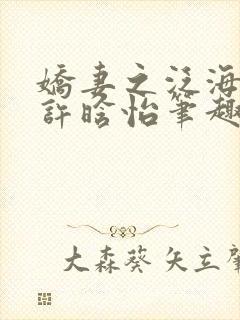 嬌妻之泛海
許晗怡筆趣
大森葵 矢立肇